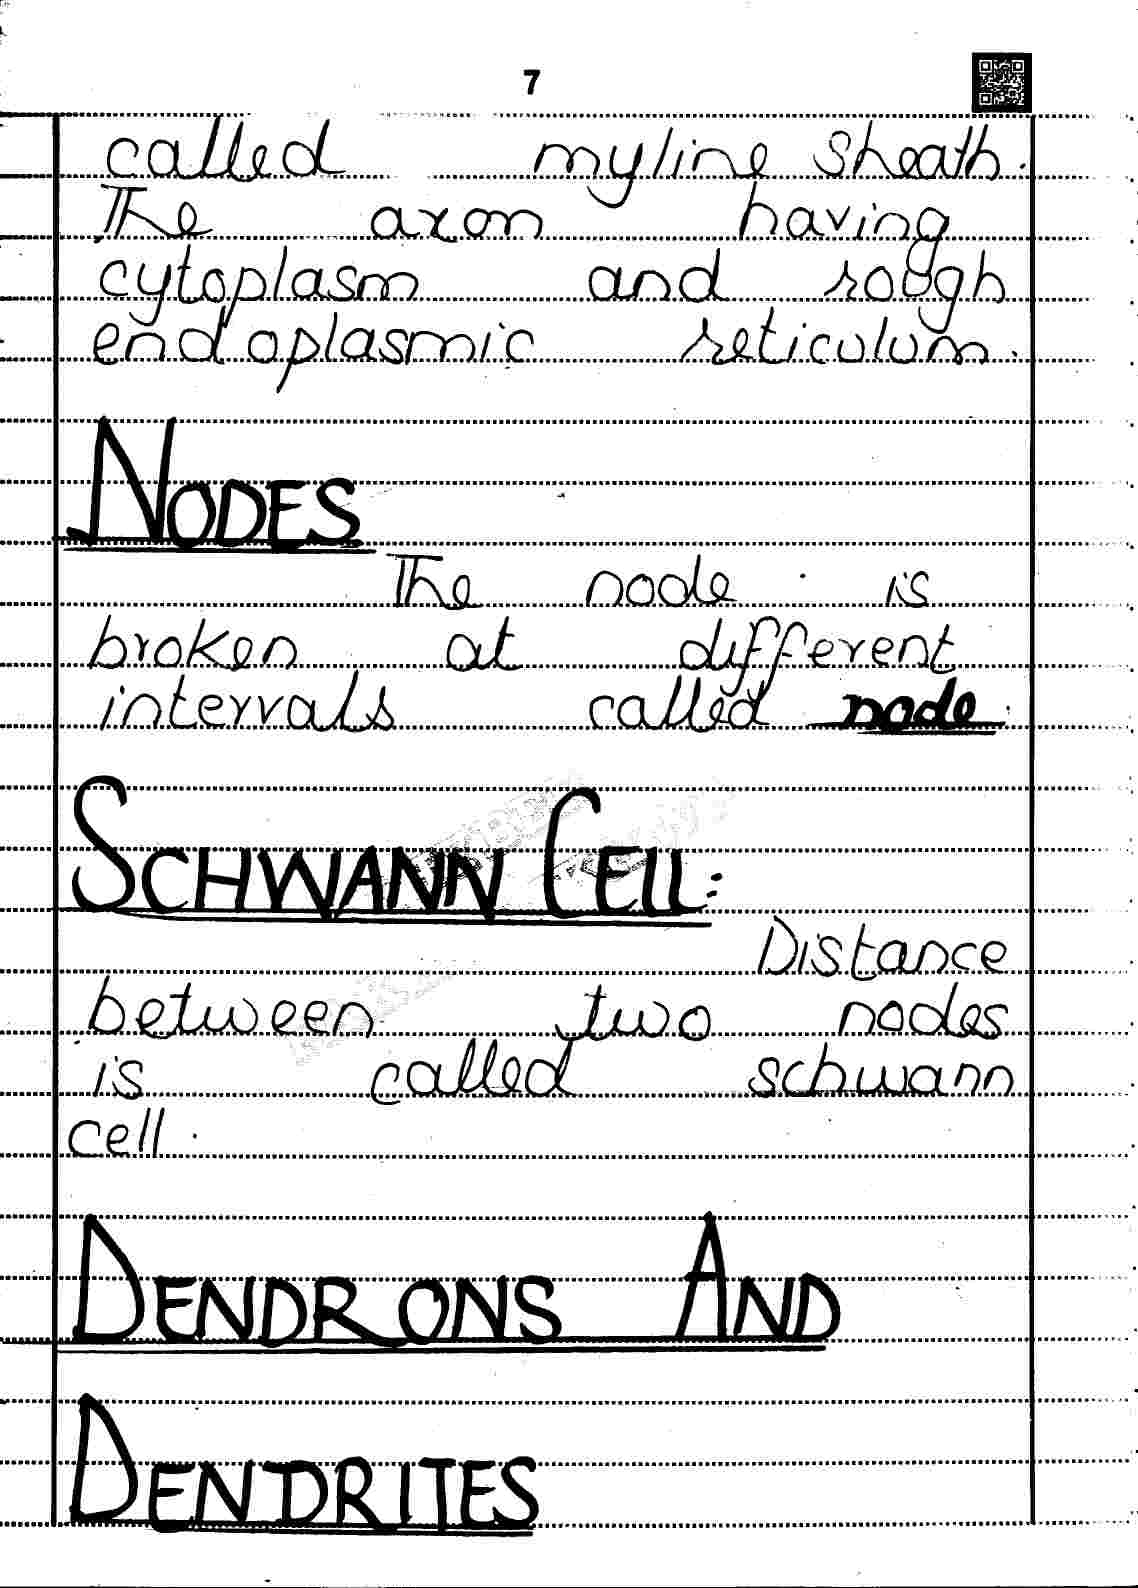 7
called myline sheath.
The axon having
cytoplasm and rough
endoplasmic reticulum.
NODES
The node is
broken at different
intervals called node.
SCHWANN CELL:
Distance
between two nodes
is called schwann
cell.
DENDRONS AND
DENDRITES